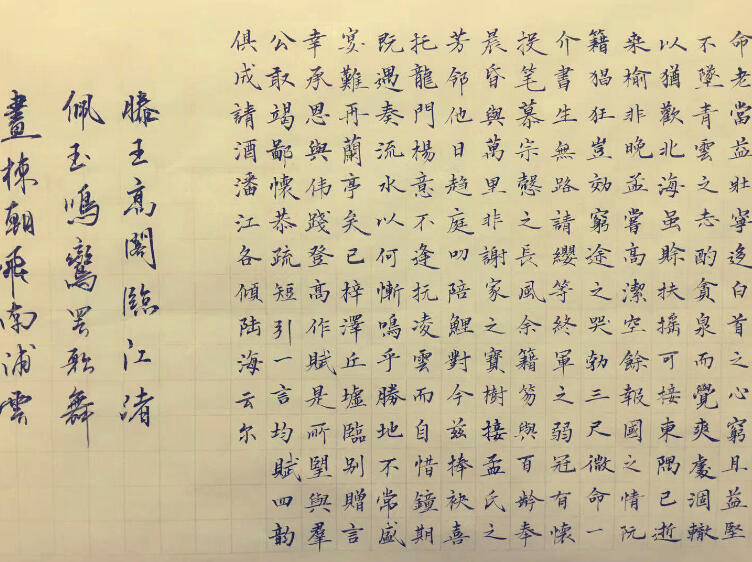 命老當益壯寧迻白首之心窮且益堅
不墜青雲之志酌貪泉而覺爽處涸轍
以猶歡北海雖賒扶搖可接東隅已逝
桒榆非晚孟嘗高潔空餘報國之情阮
籍猖狂豈効窮途之哭勃三尺微命一
介書生無路請纓等終軍之弱冠有懷
投笔慕宗慤之長風余籍笏與百龄奉
晨昏與萬里非謝家之寶樹接孟氏之
芳邻他日趋庭叨陪鯉對今兹捧袂喜
托龍門楊意不逢抚凌雲而自惜鐘期
既遇奏流水以何慚鳴乎勝地不常盛
宴難再蘭亭矣已梓澤丘墟臨别贈言
幸承恩與伟踐登高作賦是所望與羣
公敢竭鄙懷恭疏短引一言均賦四韵
俱成請酒潘江各傾陸海云尔
滕王高閣臨江渚
佩玉鳴鸞罢歌舞
畫棟朝飛南浦雲